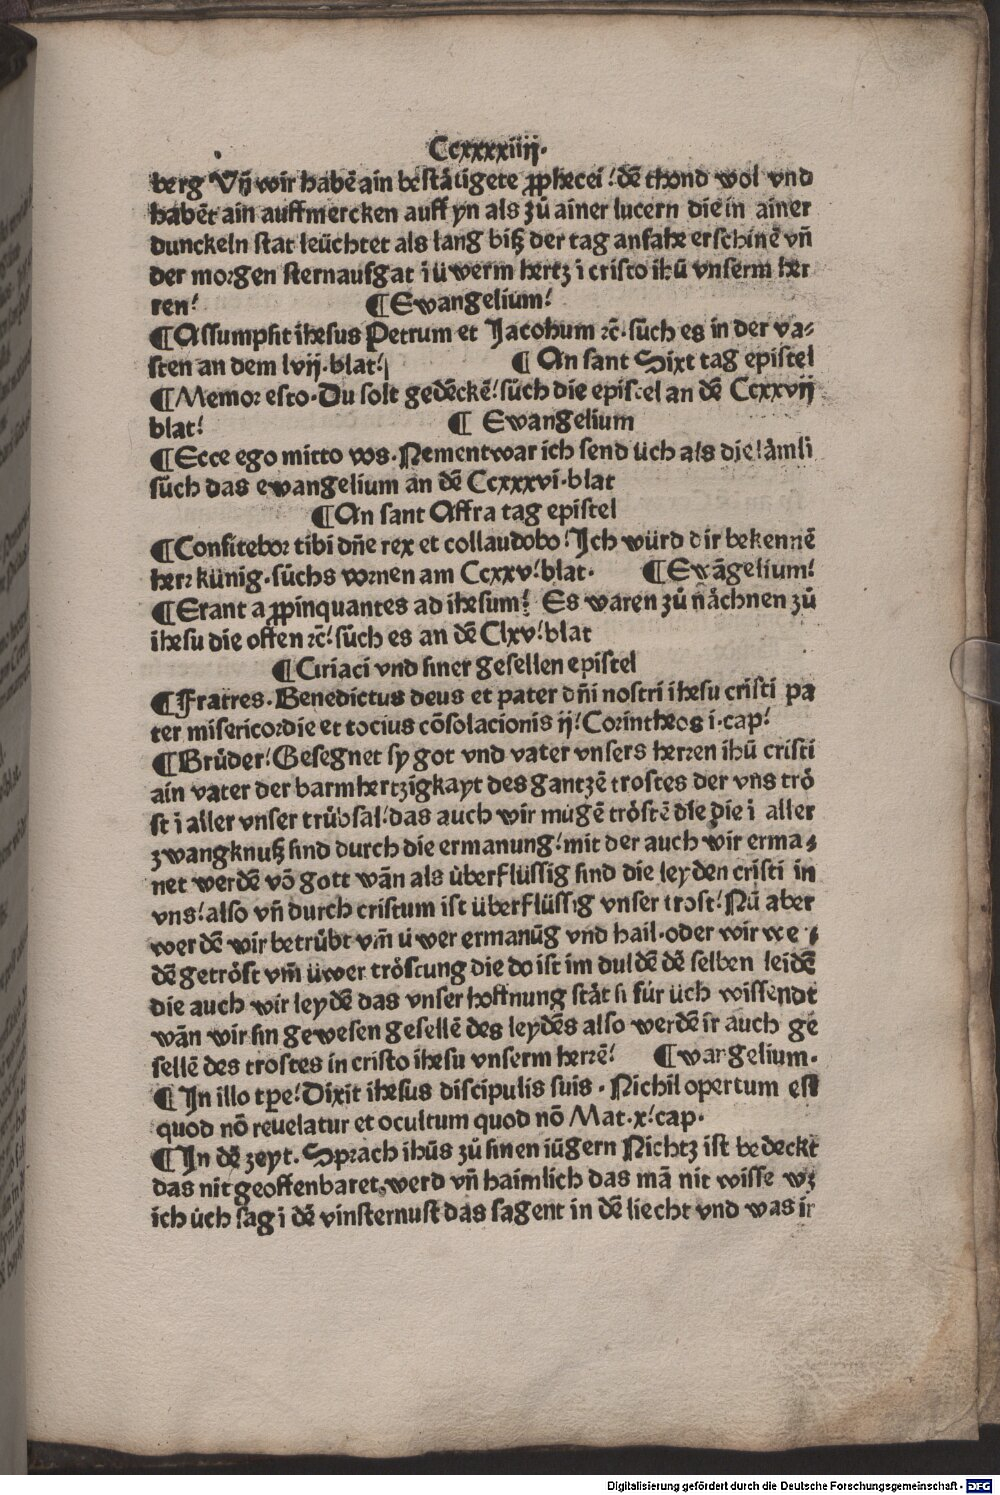 Ccxxxxiiij.
berg Vn̄ wir habē ain bestätigete ꝓphecei! dē thond wol vnd
habēt ain auffmercken auff yn als zů ainer lucern die in ainer
dunckeln stat leüchtet als lang biß der tag anfahe erschinē vn̄
der morgen sternaufgat ī ü werm hertz ī cristo ihū vnserm her
ren! ¶Ewangelium!
¶Assumpsit ihesus Petrum et Jacobum ꝛc̄. sůch es in der va⸗
sten an dem lvij. blat! ¶ An sant Sixt tag epistel
¶Memor esto. Du solt gedēckē! sůch die epistel an dē Ccxxvij
blat! ¶ Ewangelium
¶Ecce ego mitto vos. Nement war ich send üch als die lämli
sůch das ewangelium an dē Ccxxxvi. blat
¶An sant Affra tag epistel
¶Confitebor tibi dn̄e rex et collaudobo! Ich würd dir bekennē
herr künig. sůchs vornen am Ccxxv! blat. ¶Ewāgelium!
¶Erant aꝓpinquantes ad ihesum! Es waren zů nächnen zů
ihesu die offen ꝛc̄! sůch es an dē Clxv! blat
¶Ciriaci vnd siner gesellen epistel
¶Fratres. Benedictus deus et pater dn̄i nostri ihesu cristi pa
ter misericordie et tocius cōsolacionis ij! Corintheos i. cap!
¶Brüder! Gesegnet sy got vnd vater vnsers herren ihū cristi
ain vater der barmhertzigkayt des gantzē trostes der vns trö
st ī aller vnser trübsal! das auch wir mügē tröstē die die ī aller
zwangknuß sind durch die ermanung! mit der auch wir erma⸗
net werdē vō gott wān als überflüssig sind die leyden cristi in
vns! also vn̄ durch cristum ist überflüssig vnser trost! Nū aber
werdē wir betrübt vm̄ ü wer ermanūg vnd hail. oder wir we⸗
dē getröst vm̄ üwer tröstung die do ist im duldē dē selben leidē
die auch wir leydē das vnser hoffnung stät si für üch wissendt
wān wir sin gewesen gesellē des leydēs also werdē ir auch ge
sellē des trostes in cristo ihesu vnserm herrē! ¶wangelium.
¶In illo tꝑe! Dixit ihesus discipulis suis. Nichil opertum est
quod nō reuelatur et ocultum quod nō Mat. x! cap.
¶In dē zeyt. Sprach ihūs zů sinen iügern Nichtz ist bedeckt
das nit geoffenbaret werd vn̄ haimlich das mā nit wisse wz
ich üch sag ī dē vinsternust das sagent in dē liecht vnd was ir
Digitalisierung gefördert durch die Deutsche Forschungsgemeinschaft - DFG